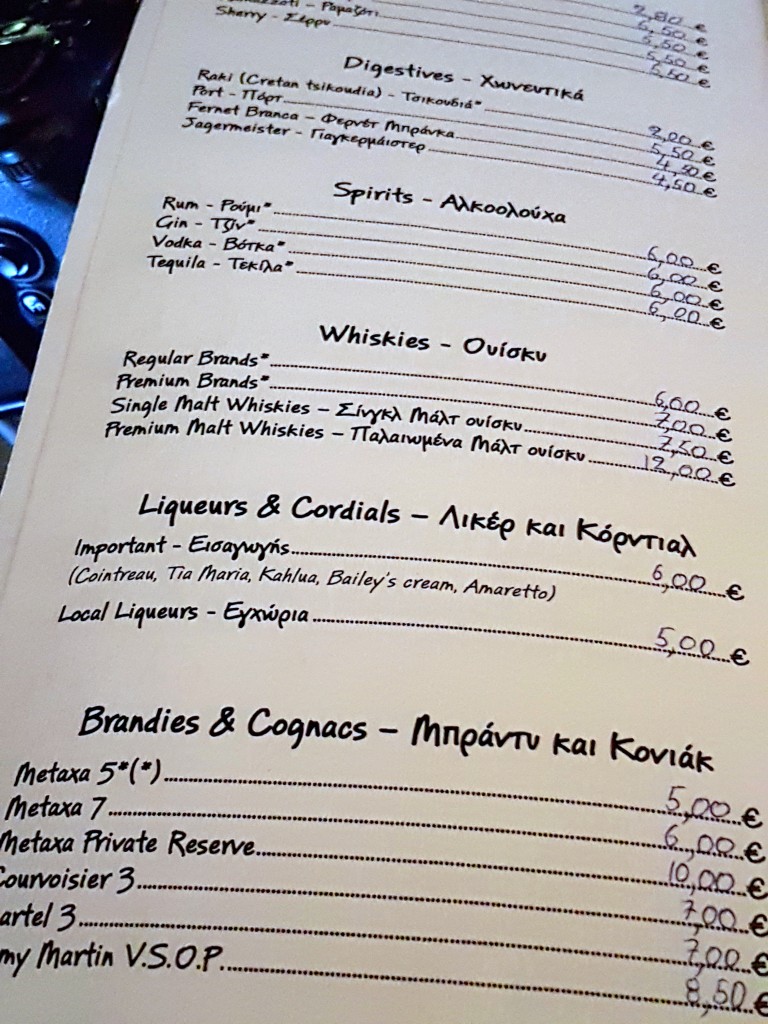 Ραμαζότι
2,80 €
Sherry - Σέρρυ
6,50 €
5,50 €
5,50 €
5,50 €
Digestives - Χωνευτικά
Raki (Cretan tsikoudia) - Τσικουδιά* 2,00 €
Port - Πόρτ 5,50 €
Fernet Branca - Φερνέτ Μπράνκα 4,50 €
Jagermeister - Γιαγκερμάιστερ 4,50 €
Spirits - Αλκοολούχα
Rum - Ρούμι* 6,00 €
Gin - Τζίν* 6,00 €
Vodka - Βότκα* 6,00 €
Tequila - Τεκίλα* 6,00 €
Whiskies - Ουίσκυ
Regular Brands* 6,00 €
Premium Brands* 7,00 €
Single Malt Whiskies – Σίνγκλ Μάλτ ουίσκυ 7,50 €
Premium Malt Whiskies - Παλαιωμένα Μάλτ ουίσκυ 12,00 €
Liqueurs & Cordials – Λικέρ και Κόρντιαλ
Important - Εισαγωγής 6,00 €
(Cointreau, Tia Maria, Kahlua, Bailey's cream, Amaretto)
Local Liqueurs - Εγχώρια 5,00 €
Brandies & Cognacs – Μπράντυ και Κονιάκ
Metaxa 5*(*) 5,00 €
Metaxa 7 6,00 €
Metaxa Private Reserve 10,00 €
Courvoisier 3 7,00 €
artel 3 7,00 €
my Martin V.S.O.P. 8,50 €